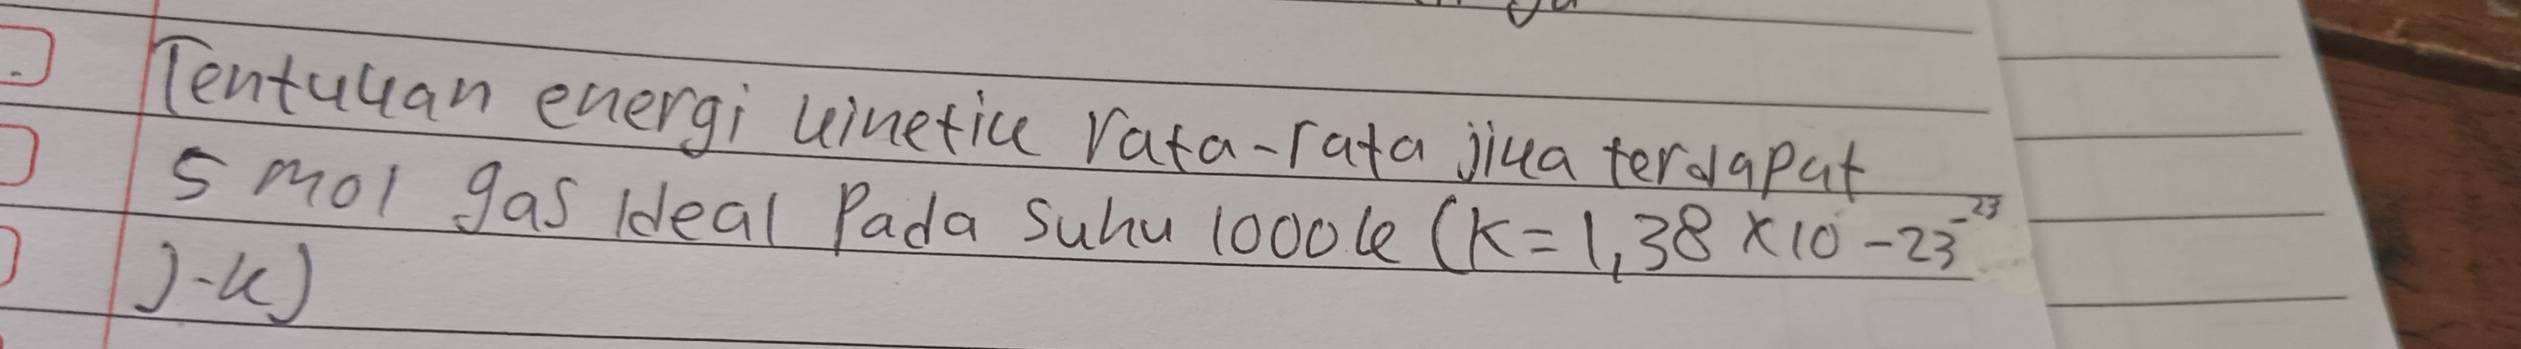 Tentukan energi kinetik rata-rata jika terdapat
5 mol gas ideal Pada suhu 1000 k (K = 1,38 x 10 -23 -23
J-k)